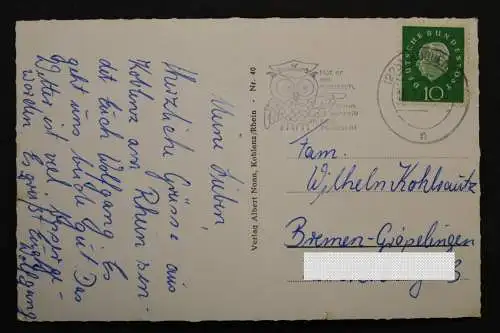 Meine Lieben,
Herzliche Grüsse aus
Koblenz am Rhein sen-
det Euch Wolfgang. Es
geht uns beide gut. Das
Wetter ist viel
worden. Es grüßt Euch
Wolfgang
Verlag Albert Nonn, Koblenz/Rhein - Nr. 40
Hat er
DEUTSCHE BUNDESPOST
10
Fam.
Wilhelm Kohlsautz
Bremen-Gröpelingen